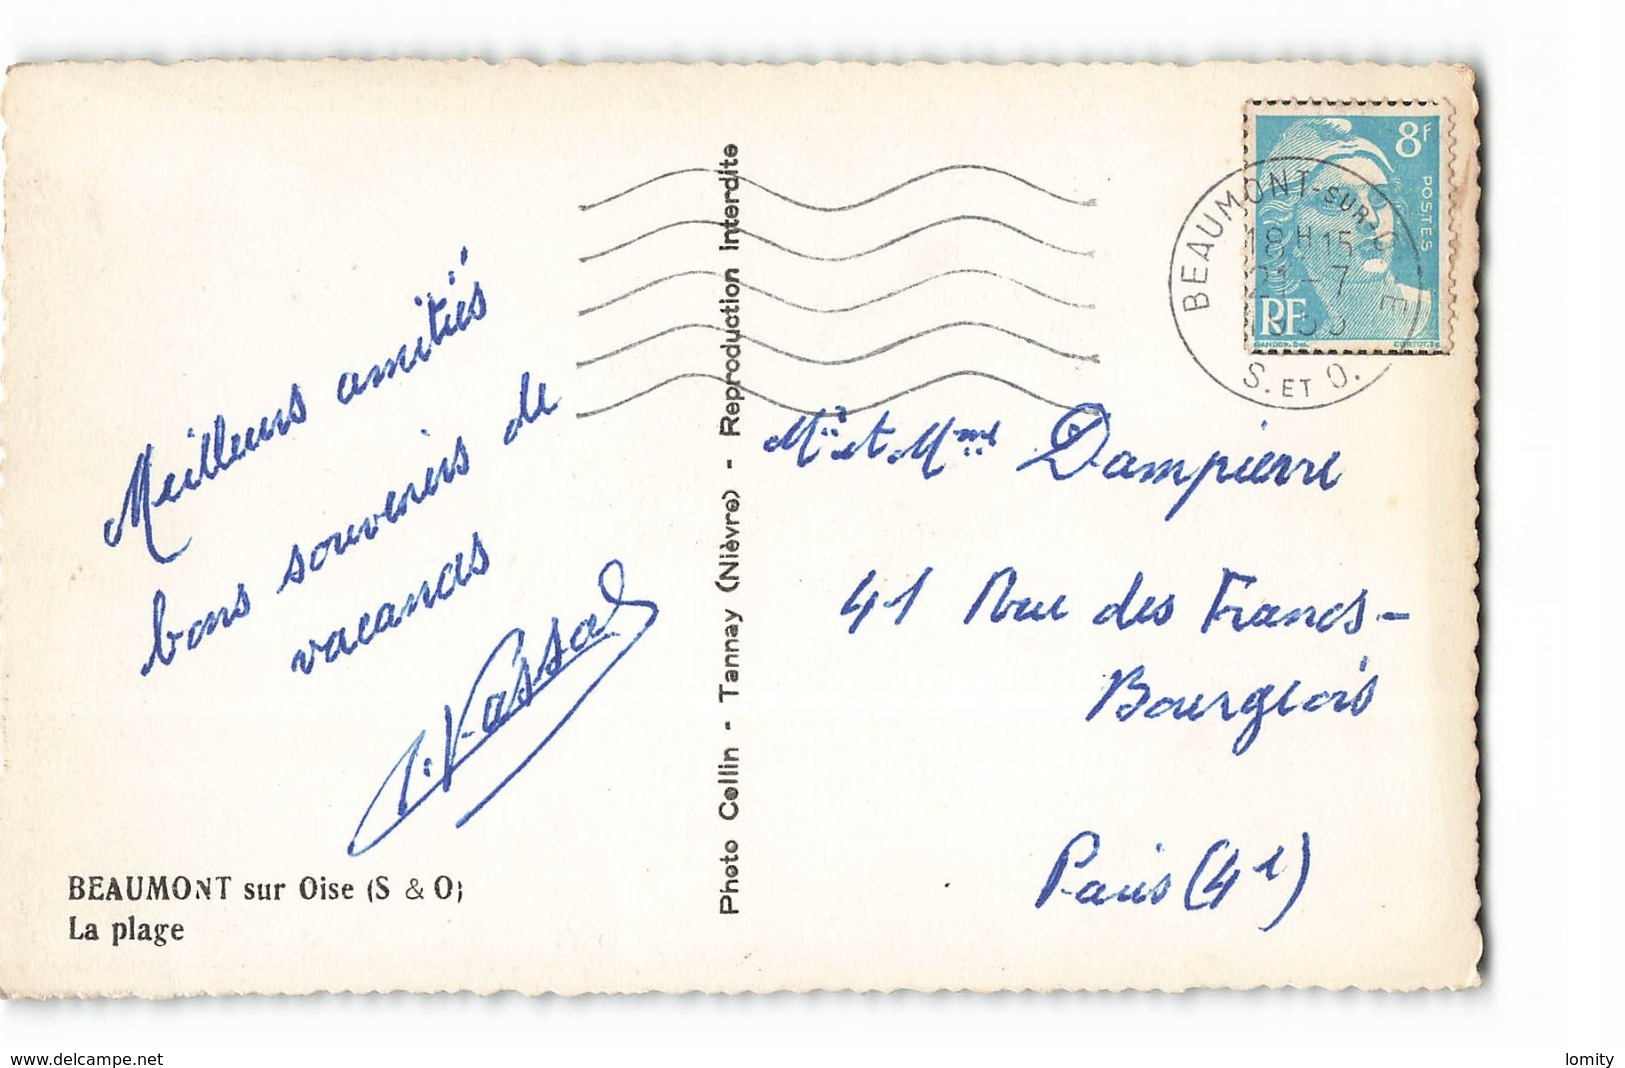 Meilleurs amitiés
bons souvenirs de
vacances
J. Vassal
BEAUMONT sur Oise (S & O)
La plage
Photo Collin - Tannay (Nièvre) - Reproduction Interdite
8F
POSTES
RF
BEAUMONT-SUR-OISE
18H15
-7
S. ET O.
Mr et Mme Dampierre
41 Rue des Francs-
Bourgeois
Paris (4e)
www.delcampe.net
lomity